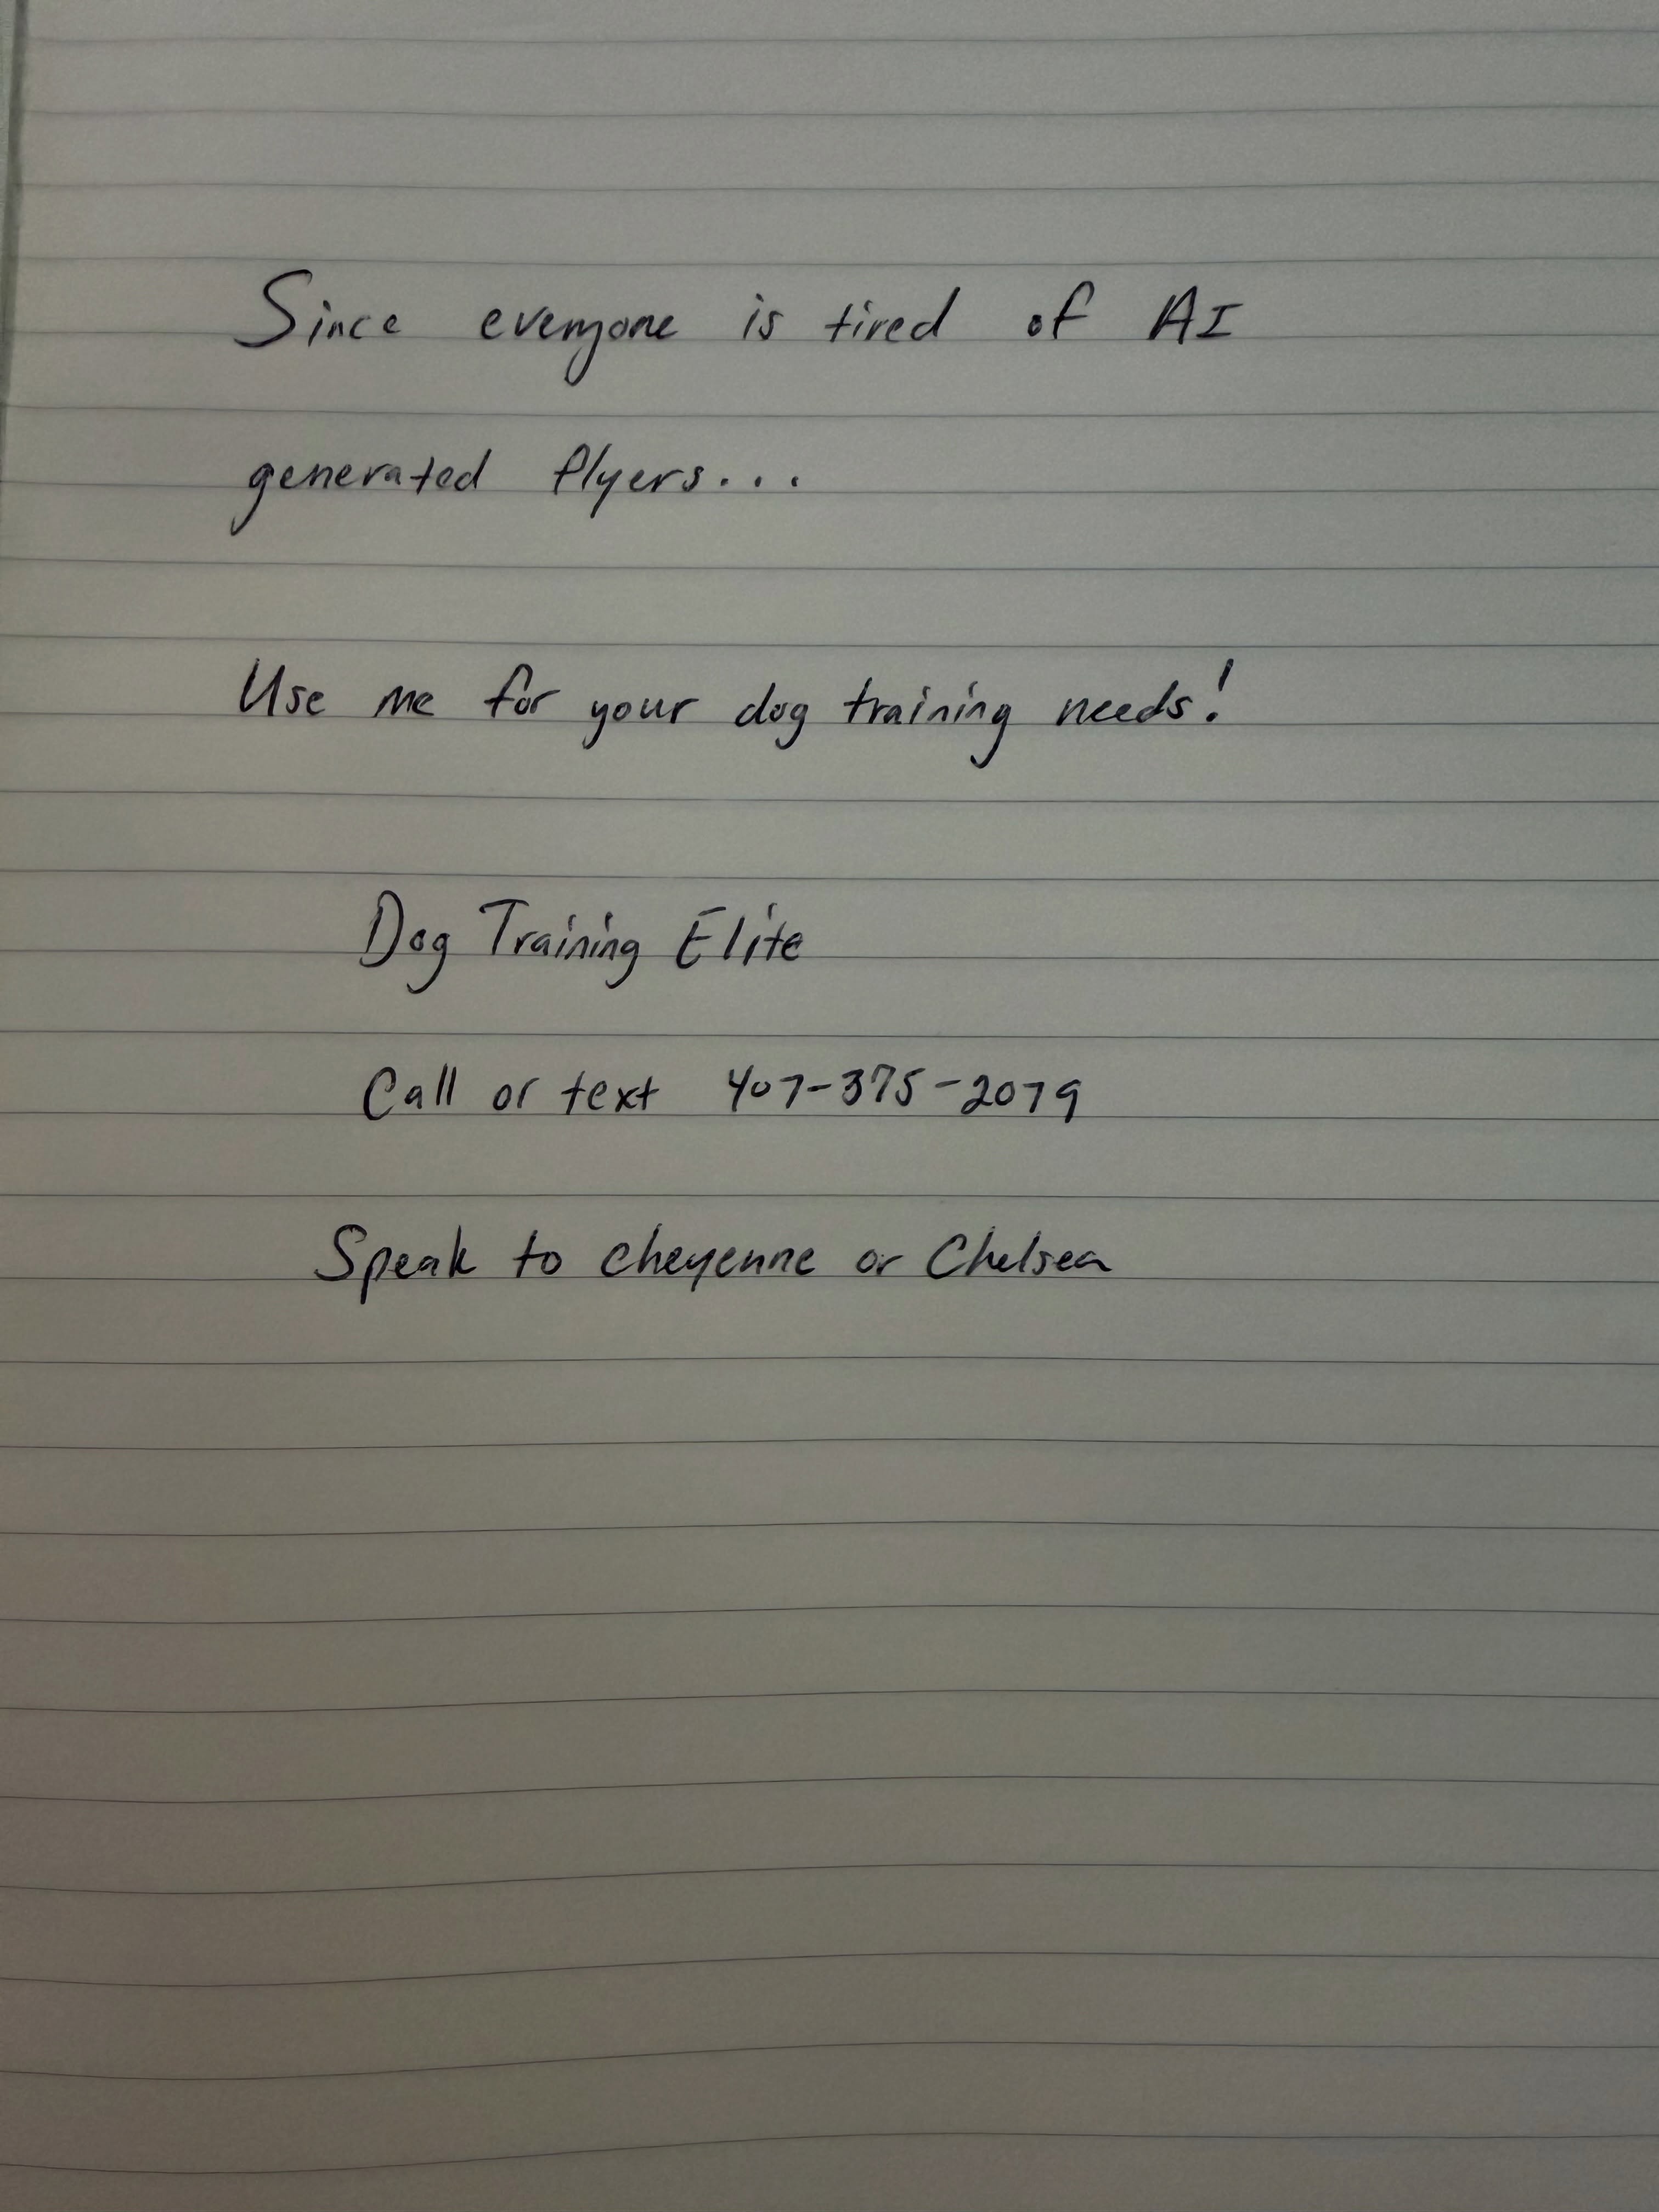 Since everyone is tired of AI
generated flyers...
Use me for your dog training needs!
Dog Training Elite
Call or text 407-375-2079
Speak to Cheyenne or Chelsea